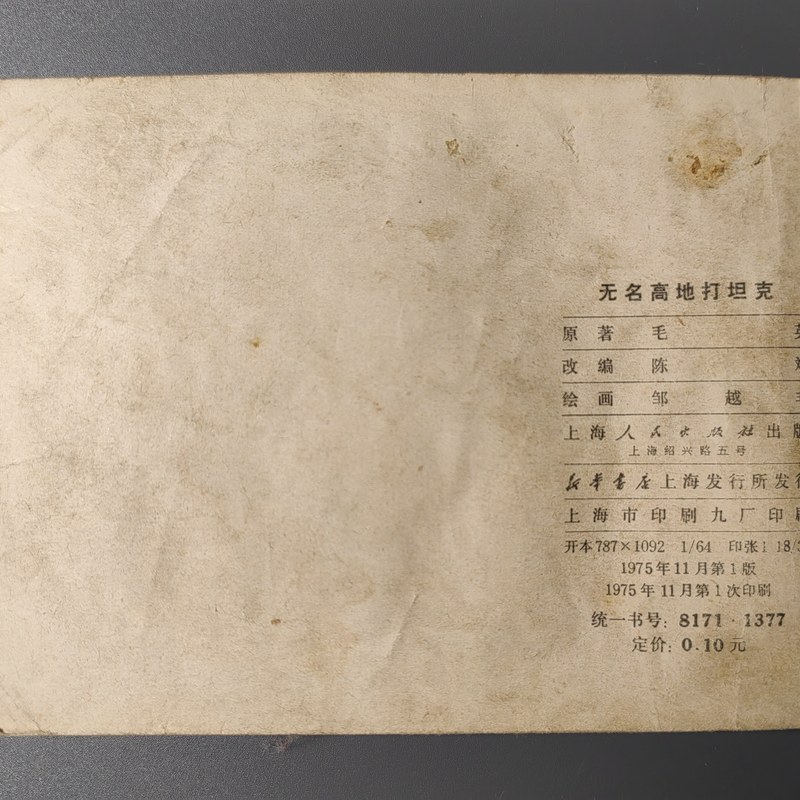 无名高地打坦克
原著 毛 英
改编 陈
绘画 邹越
上海人民出版社出版
上海绍兴路五号
新华书店上海发行所发行
上海市印刷九厂印刷
开本787×1092 1/64 印张1 18/
1975年11月第1版
1975年11月第1次印刷
统一书号：8171·1377
定价：0.10元